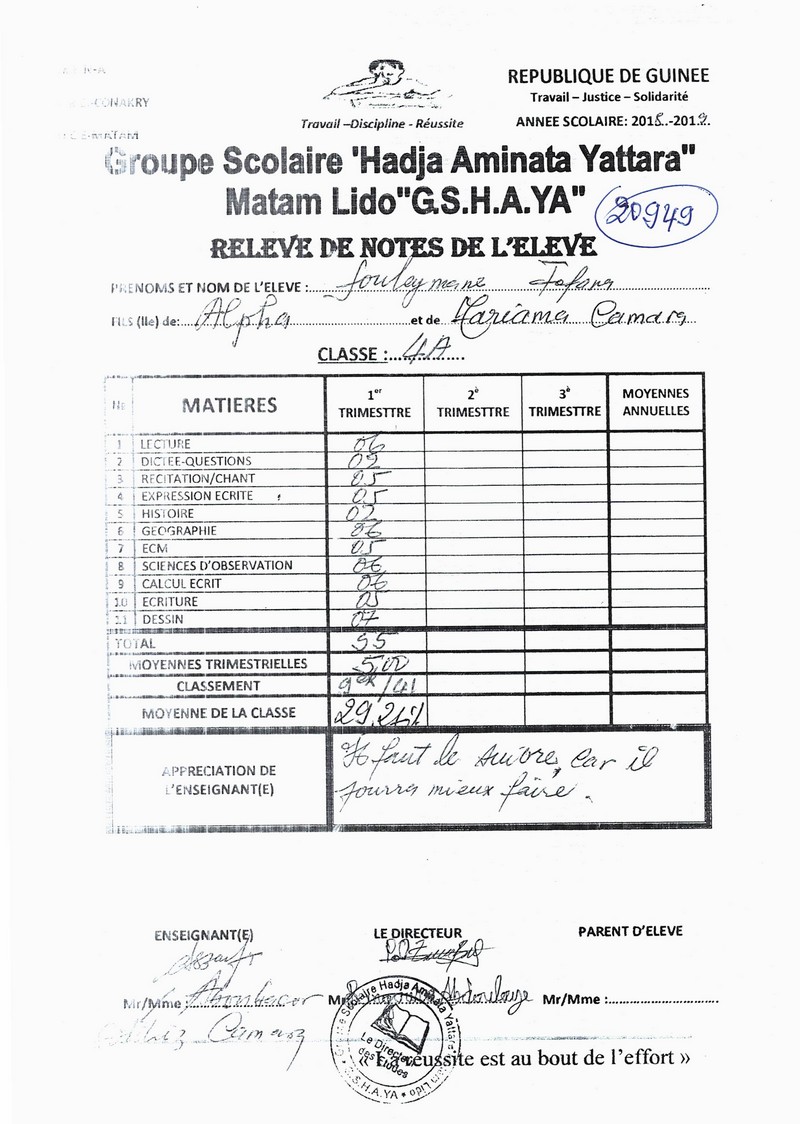 REPUBLIQUE DE GUINEE
-CONAKRY
Travail – Justice – Solidarité
Travail –Discipline - Réussite
ANNEE SCOLAIRE: 2018.-2019.
-MATAM
Groupe Scolaire "Hadja Aminata Yattara"
Matam Lido"G.S.H.A.YA"
20949
RELEVE DE NOTES DE L'ELEVE
PRENOMS ET NOM DE L'ELEVE : Souleymane Fofana
FILS (lle) de: Alpha et de Mariama Camara
CLASSE : 4A
N° MATIERES 1er TRIMESTTRE 2è TRIMESTTRE 3è TRIMESTTRE MOYENNES ANNUELLES
1 LECTURE 06
2 DICTEE-QUESTIONS 02
3 RECITATION/CHANT 05
4 EXPRESSION ECRITE 05
5 HISTOIRE 02
6 GEOGRAPHIE 06
7 ECM 05
8 SCIENCES D'OBSERVATION 06
9 CALCUL ECRIT 06
10 ECRITURE 05
11 DESSIN 07
TOTAL 55
MOYENNES TRIMESTRIELLES 5,00
CLASSEMENT 9ex/41
MOYENNE DE LA CLASSE 29,2
APPRECIATION DE L'ENSEIGNANT(E) Il faut le suivre, car il
pourra mieux faire.
ENSEIGNANT(E) LE DIRECTEUR PARENT D'ELEVE
Mr/Mme : Aboubacar Mr Abdoulaye Mr/Mme :
Camara
Groupe Scolaire Hadja Aminata Yattara Matam Lido
Le Directeur
des Etudes
G.S.H.A.YA
« La réussite est au bout de l'effort »